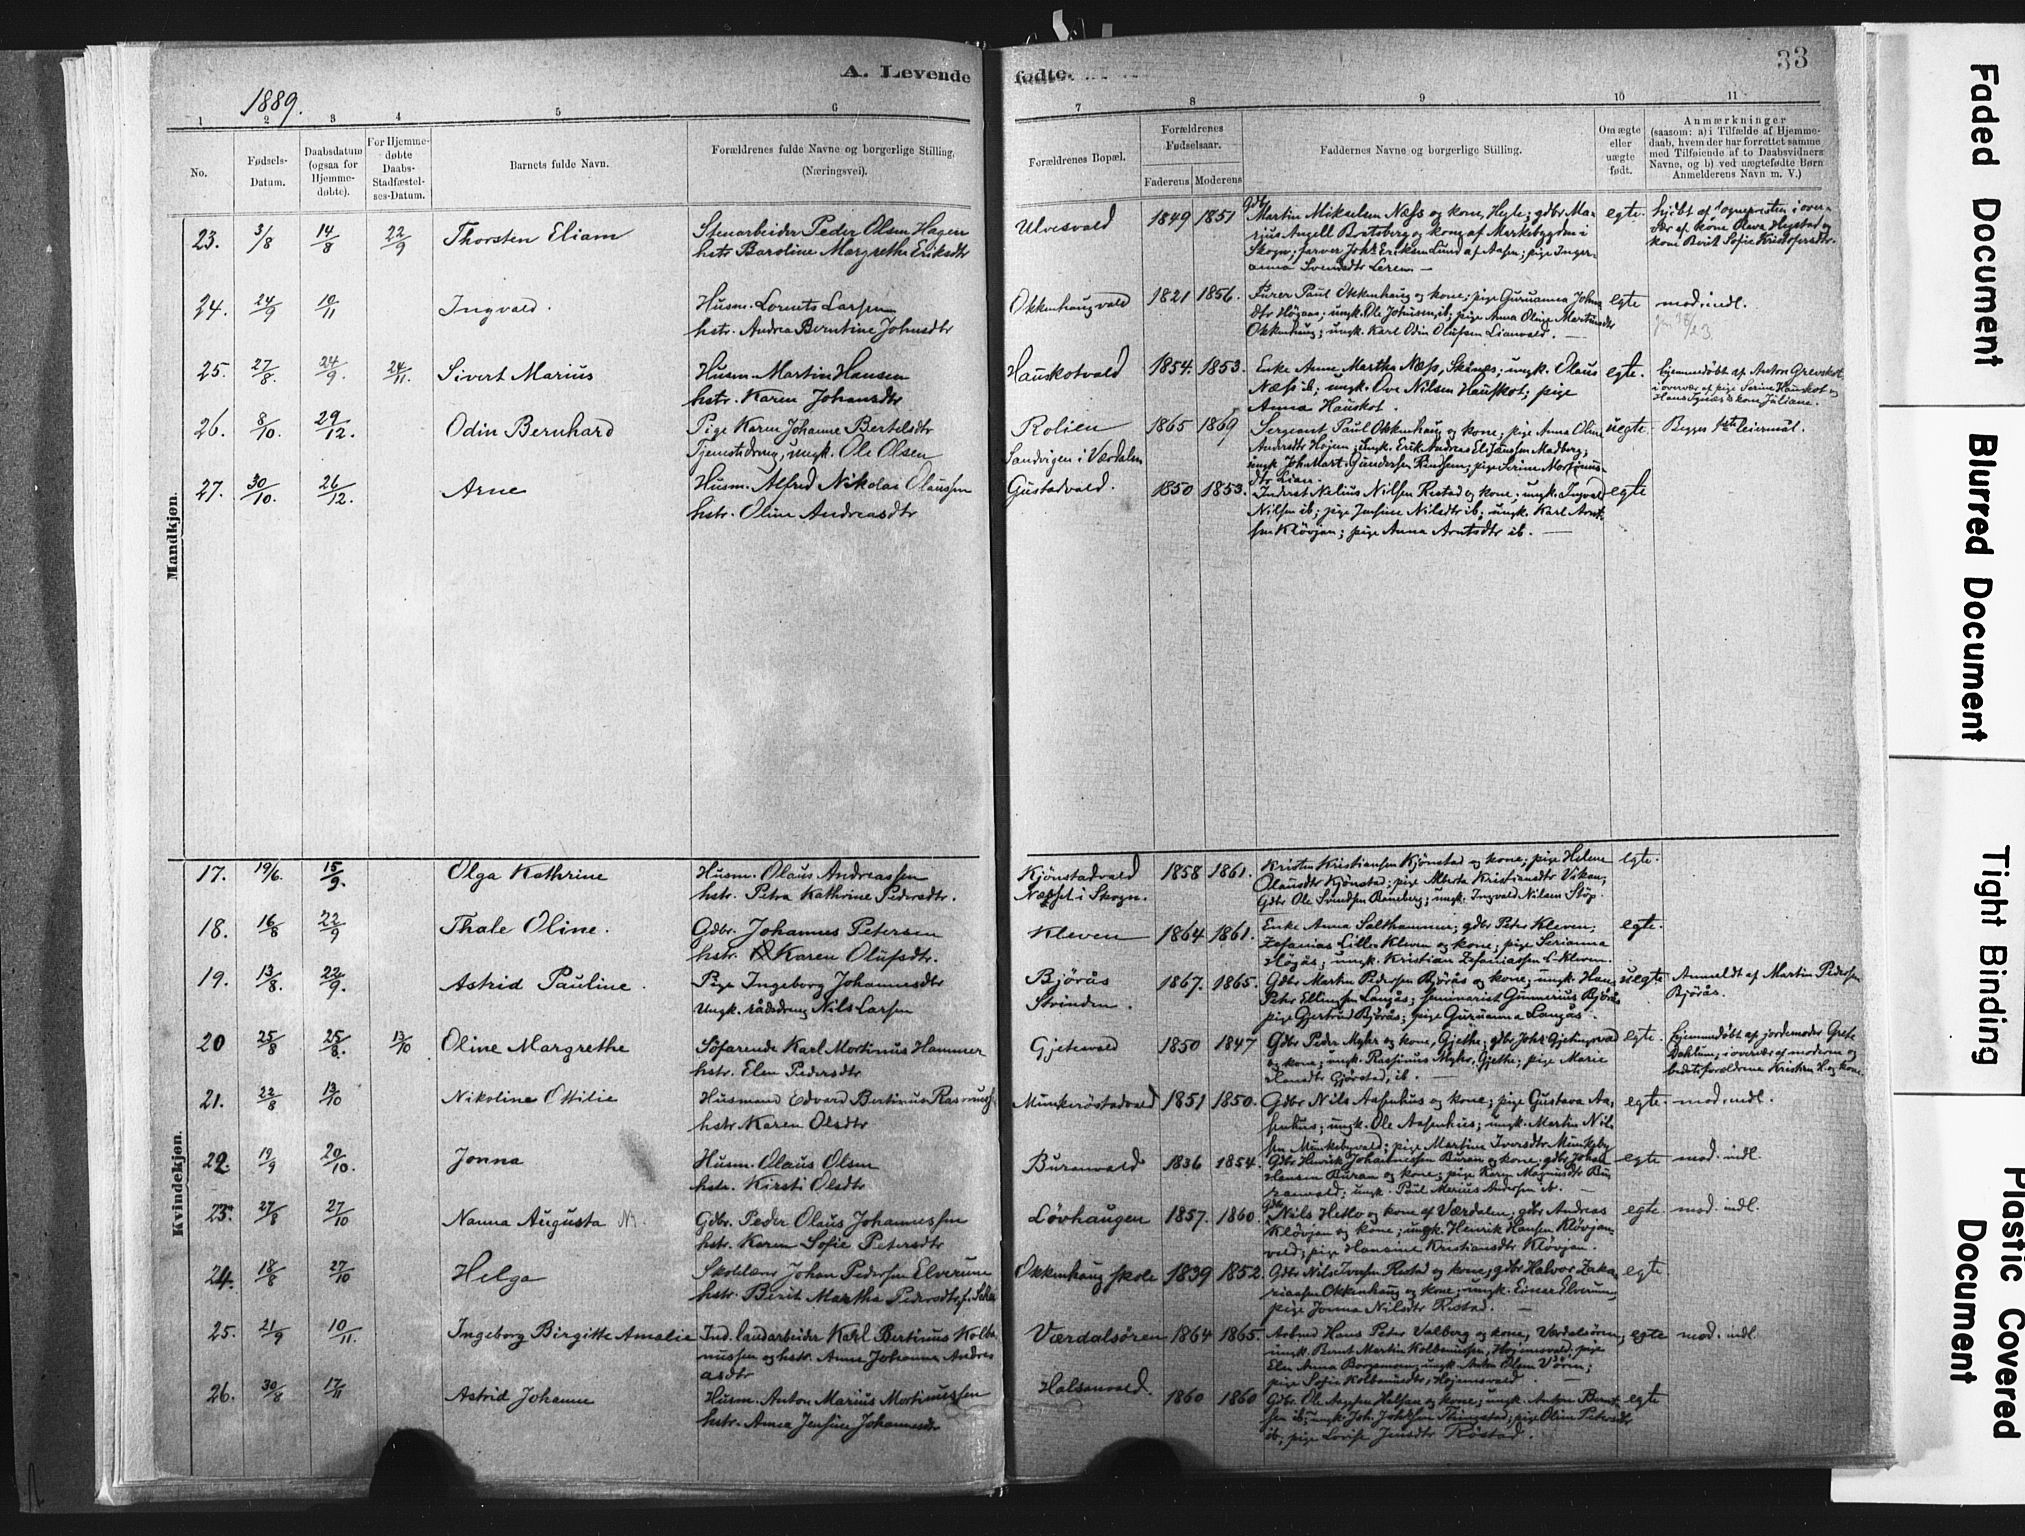 A. Levende
fødte.
33
1889.
1 2 3 4 5 6 7 8 9 10 11
No.
Fødsels-
Datum.
Daabsdatum
(ogsaa for
Hjemme-
døbte).
For Hjemme-
døbte
Daabs-
Stadfæstel-
ses-Datum.
Barnets fulde Navn.
Forældrenes fulde Navne og borgerlige Stilling,
(Næringsvei).
Forældrenes Bopæl.
Forældrenes
Fødselsaar.
Faderens Moderens
Faddernes Navne og borgerlige Stilling.
Om ægte
eller
uægte
født.
Anmærkninger
(saasom: a) i Tilfælde af Hjemme-
daab, hvem der har forrettet samme
med Tilføiende af to Daabsvidners
Navne, og b) ved uægtefødte Børn
Anmelderens Navn m. V.)
Mandkjøn.
23. 3/8 14/8 22/9 Thorsten Eliam
Stenarbeider Peder Olsen Hagen
hstr Baroline Margrethe Eriksdtr
Ulvesvald 1849 1851
Martin Mikselsen Næss og kone, gdbr Ma-
rius Angell Brataberg og kone af Markebygden i
Skogn; farver Johs Eriksen Lund af Aasen; pige Inger-
anna Svendsdtr Leren
egte.
kone Berit Sofie Kristofersdtr.
24. 24/9 10/11 Ingvald.
Husm. Lornts Larsen
hstr. Andrea Berntine Johnsdtr
Okkenhaugvald 1821 1856.
Furer Paul Okkenhaug og kone; pige Guruanna Johns
dtr Högaas; ungk. Ole Johnsen, ib; pige Anna Oline Martinsdtr
Okkenhaug; ungk. Karl Odin Olufsen Lianvald.
egte mod. indl.
25. 27/8. 24/9. 24/11. Sivert Marius
Husm. Martin Hansen
hstr. Karen Johansdtr
Hauskotvald 1854. 1853.
Enke Anne Martha Næss, Skånes; ungk. Olaus
Næss ib; ungk. Ove Nilsen Hauskot; pige
Anna Hauskot.
egte.
hjemmedøbt af Anton Grevskot
i overvær af pige Serine Hauskot og
kone Juliane.
26. 8/10. 29/12. Odin Bernhard
Pige Karen Johanne Bertelsdtr
Tjenestedreng, ungk. Ole Olsen
Rolien
Sandvigen i Værdalen
1865 1869
Sergeant Paul Okkenhaug og kone; pige Anna Oline
Andrsdtr Højem; ungk. Erik Andreas Madberg;
ungk Joh. Mart. Gundersen; pige Serine Mortinus-
dtr Lian.
uegte Begges 1ste leiermål.
27. 30/10. 26/12. Arne
Husm. Alfred Nikolai Olaussen
hstr. Oline Andreasdtr
Gustadvald. 1850 1853.
Inderst Nilsen Restad og kone; ungk. Ingvald
Nilsen ib; pige Jensine Nilsdtr ib; ungk. Karl Arnt-
sen Kløvjan; pige Anna Arntsdtr ib.
egte
Kvindekjøn.
17. 19/6. 15/9. Olga Kathrine
Husm. Olaus Andreassen
hstr. Petra Kathrine Pedersdtr.
Kjönstadvald
Næsset i Skogn.
1858 1861.
Kristen Kristiansen Kjönstad og kone; pige Helene
Olausdtr Kjönstad; pige Alberta Kristiansdtr Vikan;
Gdbr Ole Svendsen; ungk. Ingvald Nilsen Stöp.
egte.
18. 16/8 22/9 Thale Oline.
Gdbr. Johannes Petersen
hstr. Karen Olufsdtr.
Kleven 1864 1861.
Enke Anna Salthammer; gdbr Peter Kleven;
Zefanias Lille-Kleven og kone; pige Serianna
Högås; ungk. Kristian Zefaniassen L-Kleven.
egte.
19. 13/8. 22/9. Astrid Pauline.
Pige Ingeborg Johannesdtr
Ungk. rådsdreng Nils Larsen
Björåss
Strinden.
1867. 1865.
Gdbr Martin Pedersen Björåss og kone; ungk. Hans
Peter Ellingsen Langås; seminarist Gunnerius Björås
pige Gjertrud Björåss; pige Guruanna Langås.
uegte
Anmeldt af Martin Pedersen
Björåss.
20 25/8 25/8. 13/10 Oline Margrethe
Söfarende Karl Mortinus Hammer
hstr. Elen Pedersdtr
Gjetesvald 1850 1847
Gdbr Peder Myhr og kone, Gjethe; gdbr Johs Gjetingsvad
og kone; ungk. Rasmus Myhr, Gjethe; pige Marie
Hansdtr Gjörstad, ib.
egte.
hjemmedøbt af jordemoder Grete
Dahlum, i overvær af moderen og
bedsteforældrene Kristen H. og kone
21. 22/8 13/10 Nikoline Ottilie
Husmand Edvard Bertinus Rasmuss.
hstr Karen Olsdtr
Munkeröstadvald 1851 1850.
Gdbr Nils Aasenhus og kone; pige Gustava Aa-
senhus; ungk. Ole Aasenhus; ungk. Martin Nil-
sen Munkebyvald; pige Martine Iversdtr Munkeby
egte. mod. indl.
22. 19/9 20/10. Jonna
Husm. Olaus Olsen
hstr. Kirsti Olsdtr
Buranvald 1836 1854.
Gdbr Henrik Johannessen Buran og kone; gdbr Johan
Hansen Buran og kone; pige Karen Magnusdtr Bu-
ranvald; ungk. Paul Marius Andersen ib.
egte mod. indl.
23. 27/8 27/10 Nanna Augusta
Gdbr. Peder Olaus Johannessen
hstr. Karen Sofie Petersdtr
Lövhaugen 1857. 1860.
Nils Hetlo og kone af Værdalen; gdbr Andreas
Kløvjan og kone; ungk Henrik Hansen Kløvjan-
vald; pige Hansine Kristiansdtr Kløvjan.
egte mod. indl.
24. 18/8 27/10 Helga
Skolelærer Johan Pedersen Elverum
hstr. Berit Martha Pedersdtr,
Okkenhaug skole 1839 1852.
Gdbr Nils Iversen Restad og kone; gdbr Halvor Zaka-
riassen Okkenhaug og kone; ungk. Einar Elverum;
pige Jonna Nilsdtr Restad.
egte
25. 21/9 10/11. Ingeborg Birgitte Amalie
Ind. landarbeider Karl Bertinus Kolbe-
nussen og hstr. Anne Johanna Andre-
asdtr
Værdalsören 1864 1865.
Arbmd Hans Peter Valberg og kone, Værdalsören;
ungk. Bernt Martin Kolbenussen, Hojemsvald; pige
Elen Anna Borgemoen; ungk. Anton Olsen Vörin;
pige Sofie Kolbenusdtr, Hojemsvald.
egte mod. indl.
26. 30/8 17/11 Astrid Johanne
Husm. Anton Marius Mortinussen
hstr. Anna Jensine Johannesdtr
Halsanvald. 1860 1860
Gdbr. Ole Aagesen Halsan og kone; ungk. Anton Bernt-
sen ib; ungk. Joh. Johnsen Tingstad; pige Oline Petersdtr
ib; pige Lovise Jensdtr Röstad.
egte
Faded Document
Blurred Document
Tight Binding
Plastic Covered
Document